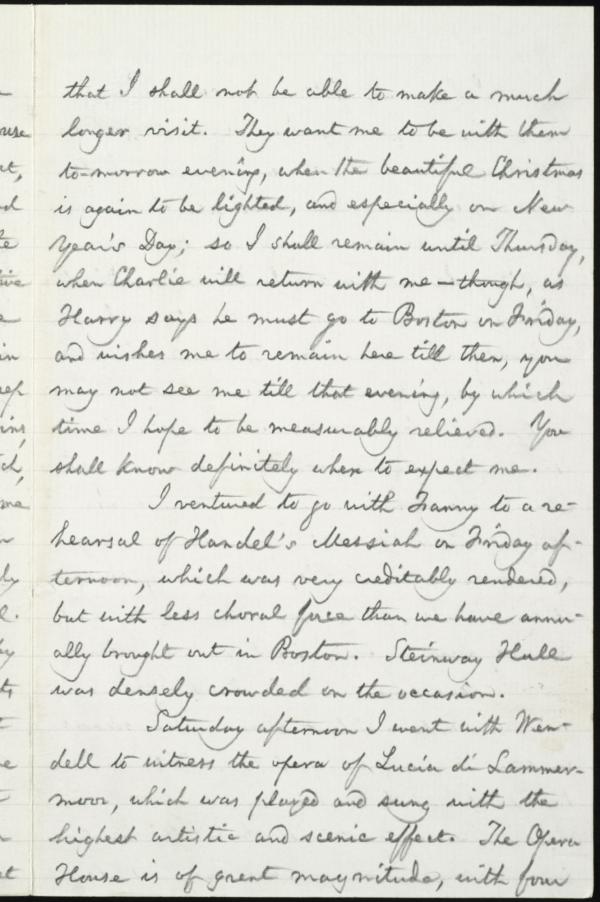 that I shall not be able to make a much
longer visit. They want me to be with them
to-morrow evening, when the beautiful Christmas
is again to be lighted, and especially on New
Year's Day; so I shall remain until Thursday,
when Charlie will return with me — though, as
Harry says he must go to Boston on Friday,
and wishes me to remain here till then, you
may not see me till that evening, by which
time I hope to be measurably relieved. You
shall know definitely when to expect me.
I ventured to go with Fanny to a re-
hearsal of Handel's Messiah on Friday af-
ternoon, which was very creditably rendered,
but with less choral force than we have annu-
ally brought out in Boston. Steinway Hall
was densely crowded on the occasion.
Saturday afternoon I went with Wen-
dell to witness the opera of Lucia di Lammer-
moor, which was played and sung with the
highest artistic and scenic effect. The Opera
House is of great magnitude, with four